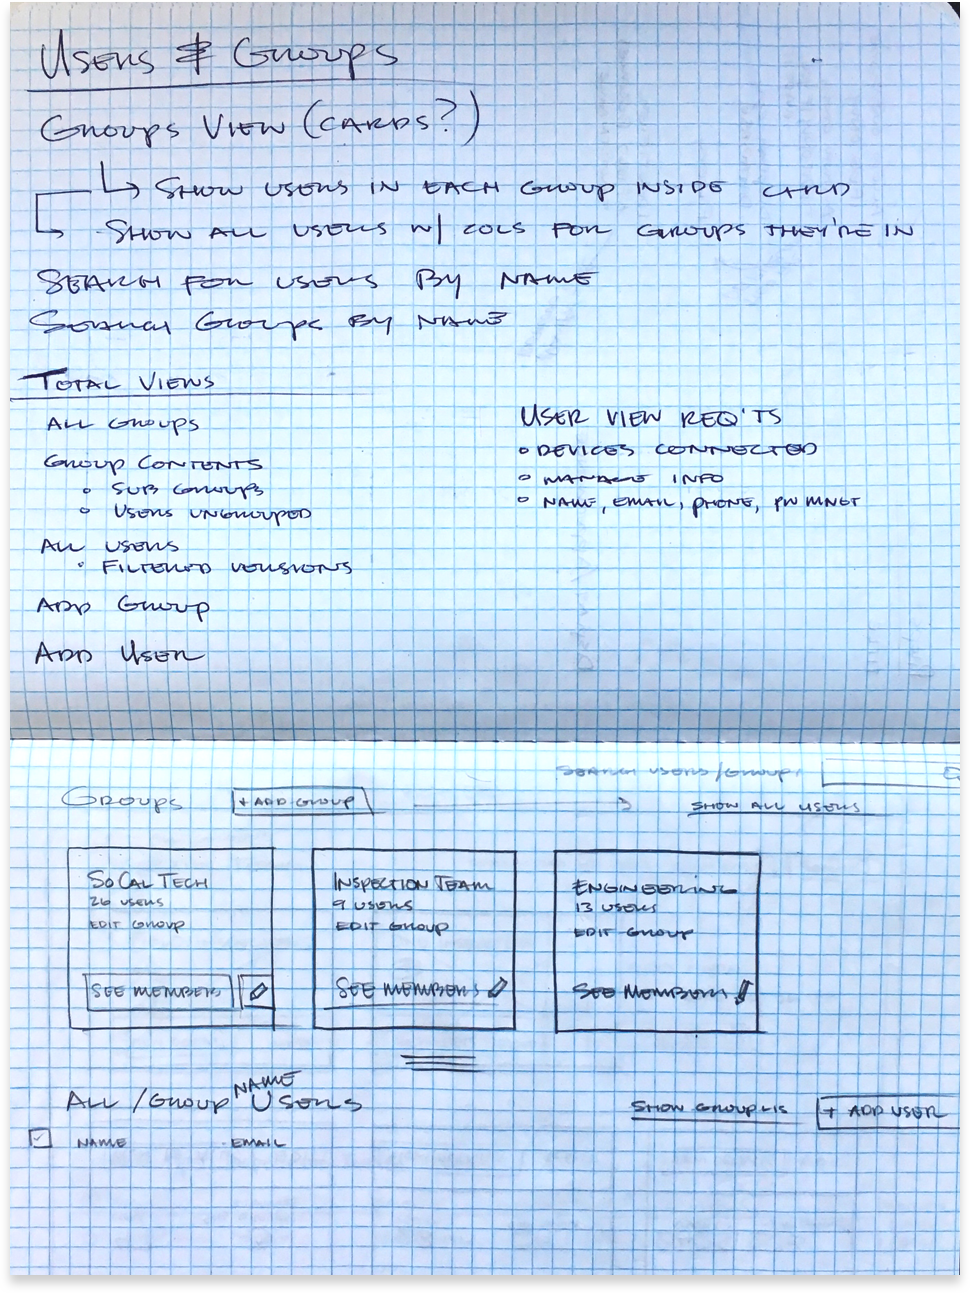 USERS & GROUPS
GROUPS VIEW (CARDS?)
SHOW USERS IN EACH GROUP INSIDE CARD
SHOW ALL USERS W/ COLS FOR GROUPS THEY'RE IN
SEARCH FOR USERS BY NAME
SEARCH GROUPS BY NAME
TOTAL VIEWS
ALL GROUPS
GROUP CONTENTS
SUB GROUPS
USERS UNGROUPED
ALL USERS
FILTERED VERSIONS
ADD GROUP
ADD USER
USER VIEW REQ'TS
DEVICES CONNECTED
MANAGE INFO
NAME, EMAIL, PHONE, PW MNGT
SEARCH USERS/GROUPS
GROUPS
+ ADD GROUP
SHOW ALL USERS
SOCAL TECH
26 USERS
EDIT GROUP
SEE MEMBERS
INSPECTION TEAM
9 USERS
EDIT GROUP
SEE MEMBERS
ENGINEERING
13 USERS
EDIT GROUP
SEE MEMBERS
ALL / GROUP NAME USERS
SHOW GROUP
+ ADD USER
NAME
EMAIL